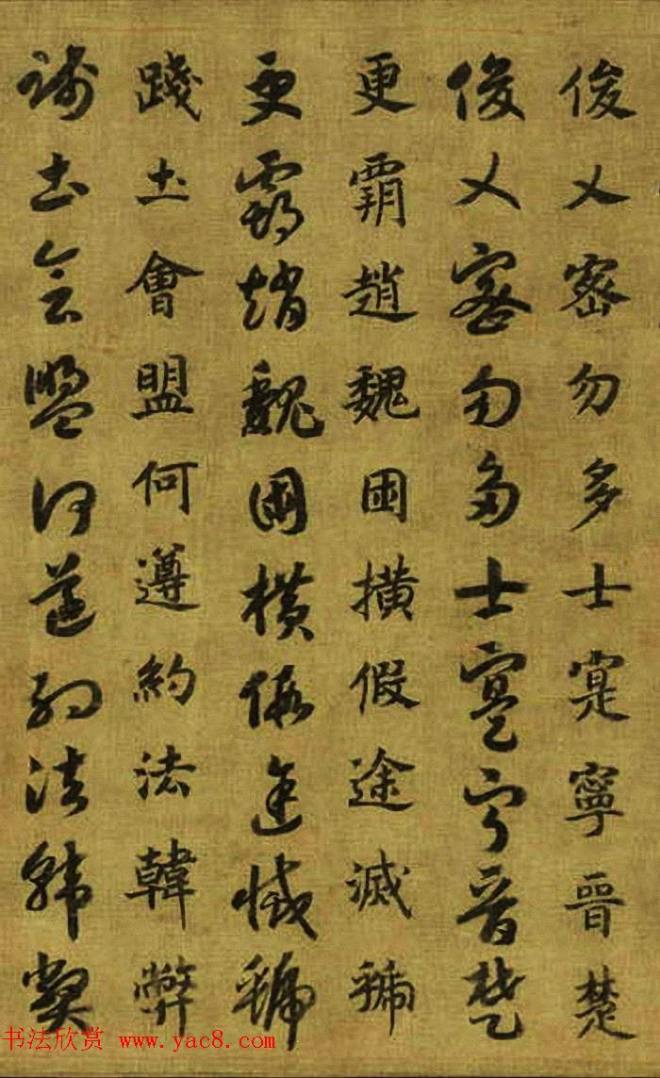 俊乂密勿多士寔寧晉楚
俊乂密勿多士寔寧晉楚
更霸趙魏困横假途滅虢
更霸趙魏困横假途滅虢
踐土會盟何遵約法韓弊
踐土會盟何遵約法韓弊
书法欣赏 www.yac8.com